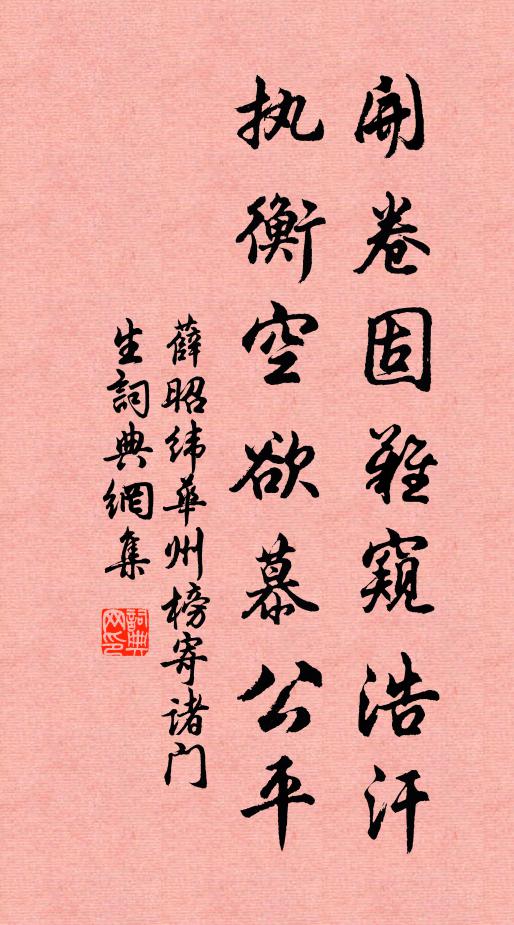 開卷固難窺浩汗
执衡空欲慕公平
薛昭緯華州榜寄諸門
生詞典網集
詞典网印